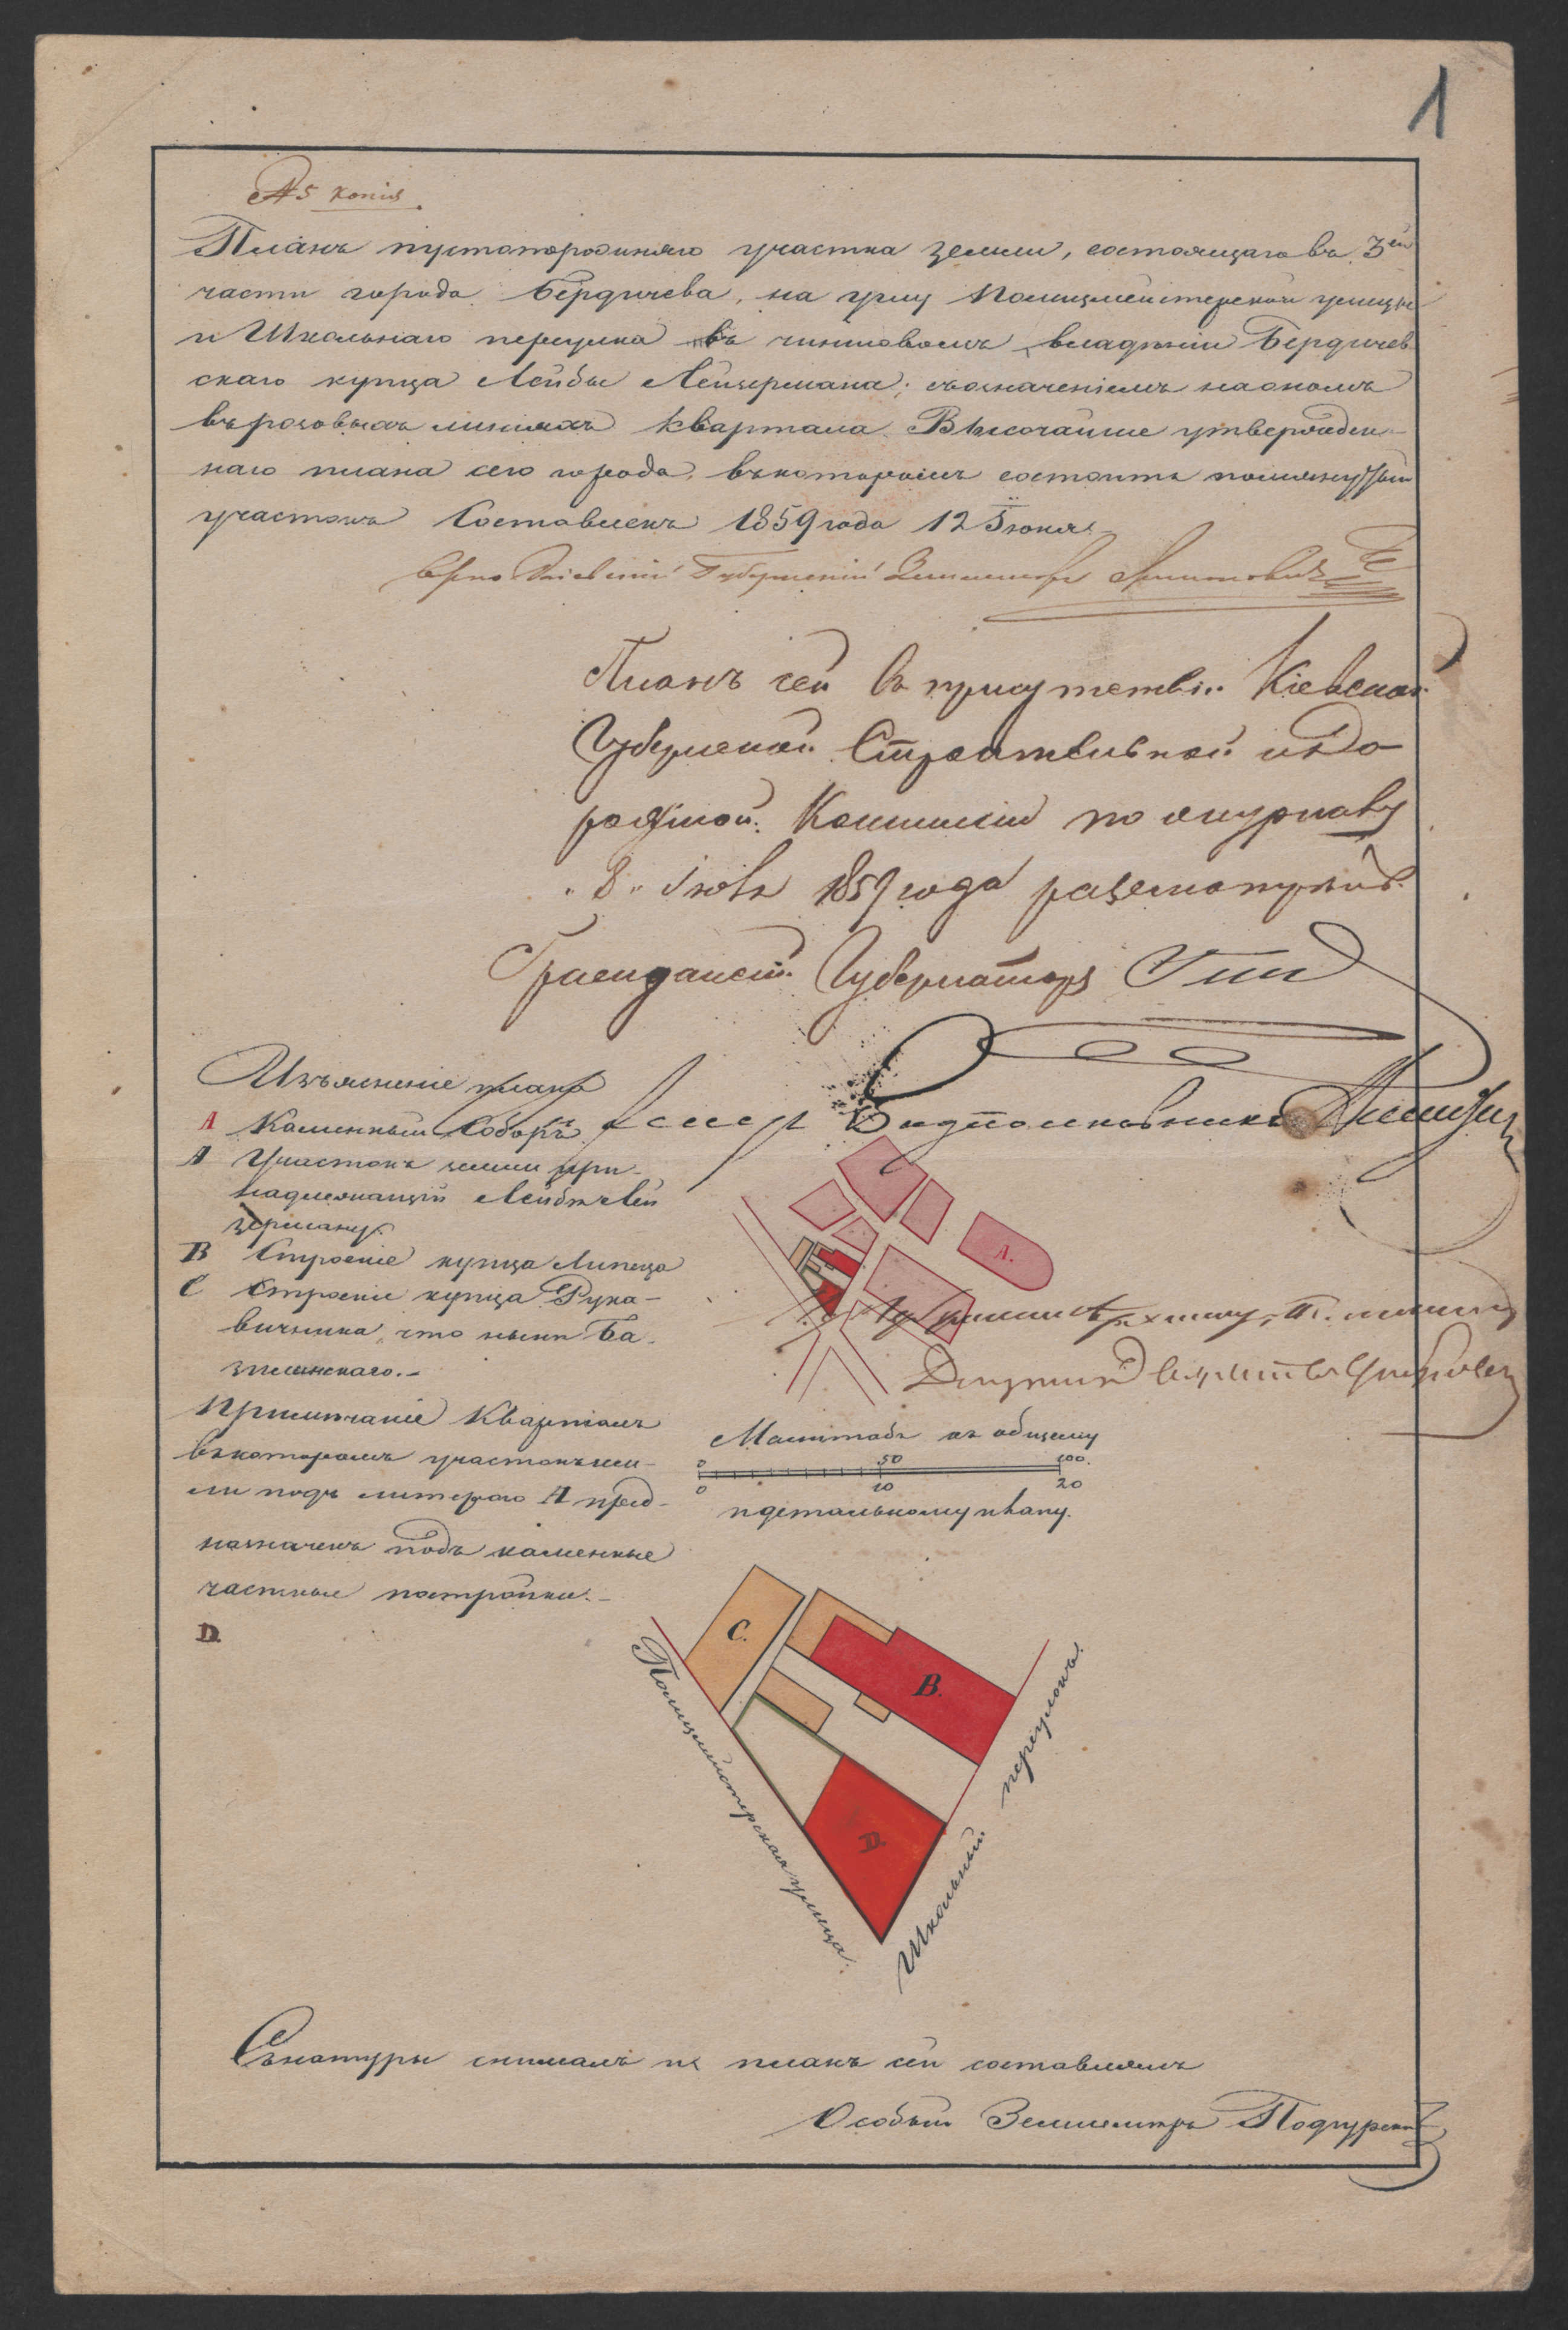 1
№ 5 копія
Планъ пустопорожняго участка земли, состоящаго въ 3ей
части города Бердичева, на углу Полицмейстерской улицы
и Школьнаго переулка въ чиншовомъ владѣніи Бердичев
скаго купца Лейбы Лейзермана; съозначеніемъ наономъ
въ розовыхъ линіяхъ квартала Высочайше утвержден-
наго плана сего города, въкоторомъ состоитъ помянутый
участокъ Составленъ 1859 года 12 Іюня.
Вѣрно Кіевскій Губернскій Землемѣръ
Планъ сей въ присутствіи Кіевской
Губернской Строительной и До
рожной Коммисіи по журналу
"8" Іюля 1859 года разсматриванъ.
Гражданскій Губернаторъ
Изъясненіе плана
А Каменный Соборъ
А Участокъ земли при-
надлежащій Лейбѣ Лей
зерману.
В Строеніе купца Липеца
С Строеніе купца Рука-
вичника, что нынѣ Ба-
зилинскаго.-
Подполковникъ
А.
Примѣчаніе Кварталъ
въкоторомъ участокъ зем-
ли подъ литерою А пред-
назначенъ подъ каменные
частные постройки.-
D
Масштабъ къ общему
0 50 100.
0 10 20
и детальному плану.
С.
В.
D
Полицмейстерская улица.
Школьный переулокъ.
Сънатуры снималъ и планъ сей составлялъ
Особый Землемѣръ Подгурскій